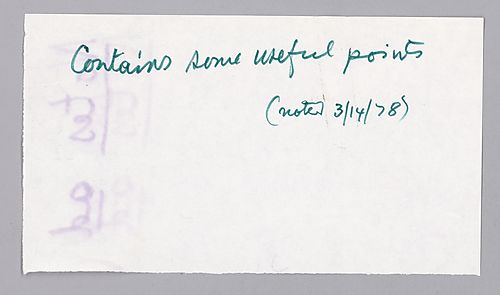 Contains some useful points
(noted 3/14/78)